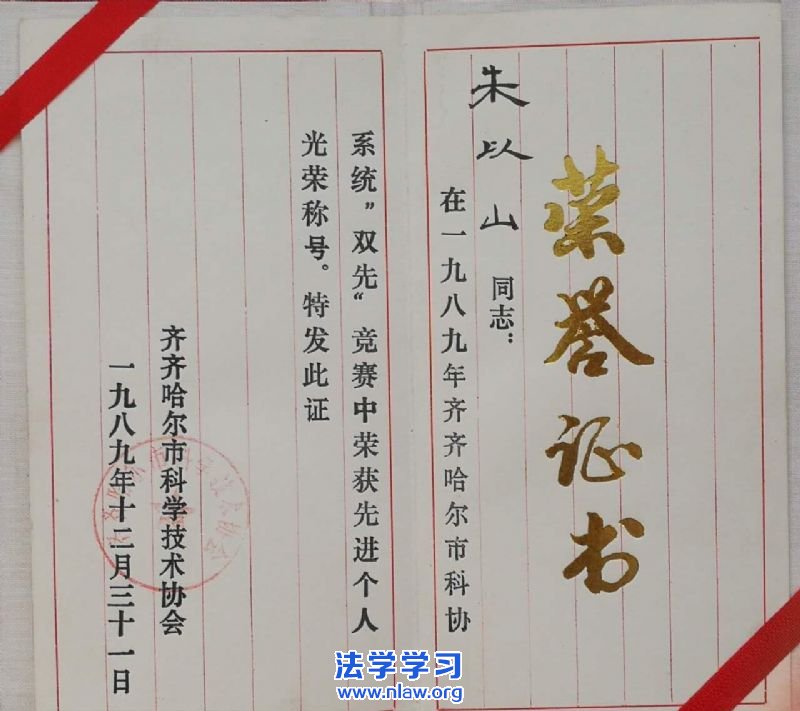 荣誉证书
朱以山 同志：
在一九八九年齐齐哈尔市科协
系统”双先“竞赛中荣获先进个人
光荣称号。特发此证
齐齐哈尔市科学技术协会
一九八九年十二月三十一日
法学学习
www.nlaw.org